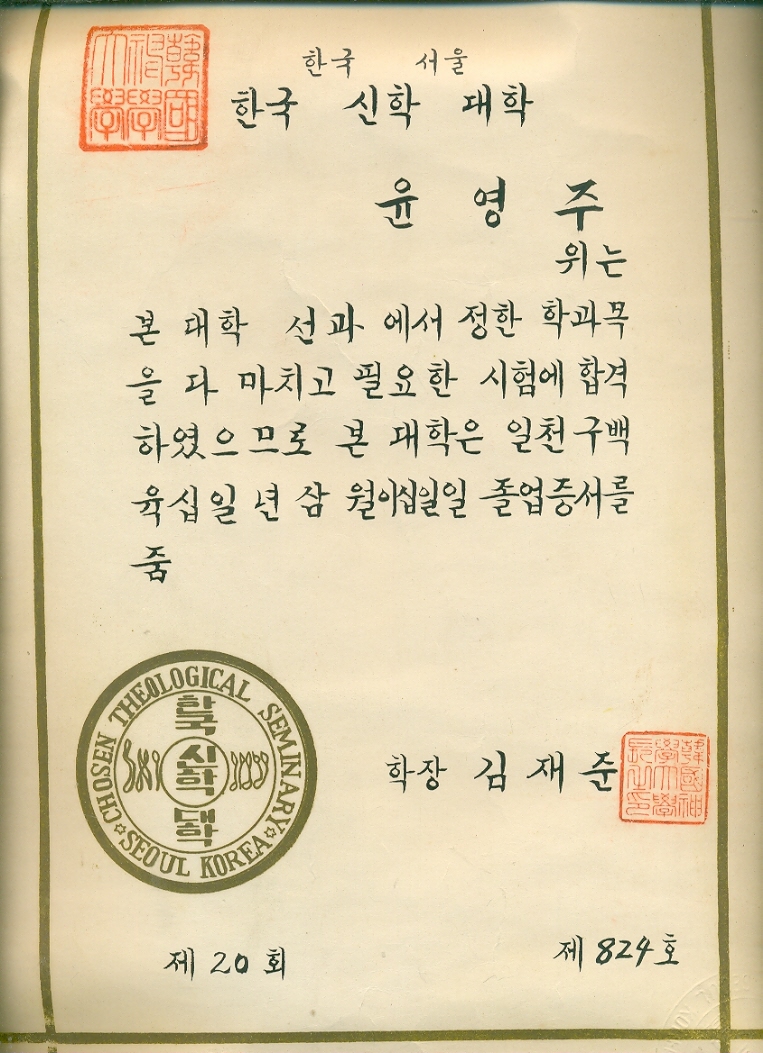 한국 서울
韓國神學大學
한국 신학 대학
윤 영 주
위는
본 대학 선과 에서 정한 학과목
을 다 마치고 필요한 시험에 합격
하였으므로 본 대학은 일천구백
육십일 년 삼 월이십일일 졸업증서를
줌
CHOSEN THEOLOGICAL SEMINARY
한국
신학
대학
1939
☆SEOUL KOREA☆
학장 김 재 준
韓國神學大學長之印
제 20 회
제 824 호